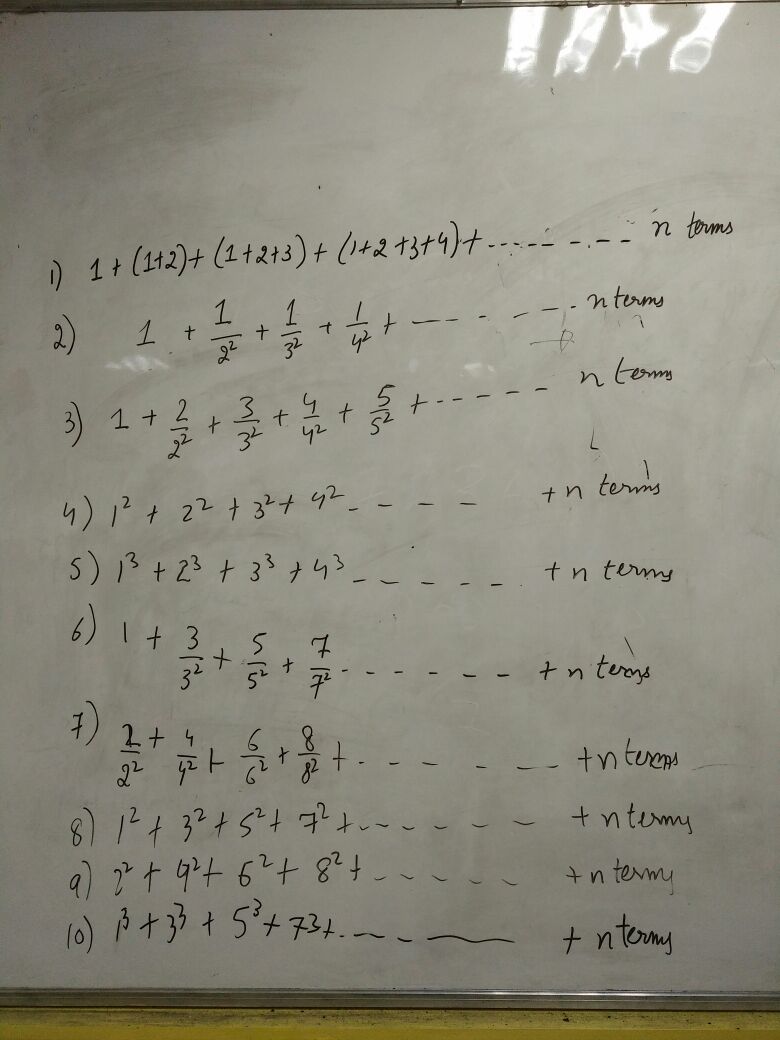 1) 1 + (1+2) + (1+2+3) + (1+2+3+4) + -------- n terms
2) 1 + 1/2² + 1/3² + 1/4² + ------- n terms
3) 1 + 2/2² + 3/3² + 4/4² + 5/5² + ------- n terms
4) 1² + 2² + 3² + 4² ----- + n terms
5) 1³ + 2³ + 3³ + 4³ ------ + n terms
6) 1 + 3/3² + 5/5² + 7/7² ------- + n terms
7) 2/2² + 4/4² + 6/6² + 8/8² + ------ + n terms
8) 1² + 3² + 5² + 7² + ------- + n terms
9) 2² + 4² + 6² + 8² + ------ + n terms
10) 1³ + 3³ + 5³ + 7³ + ----- + n terms